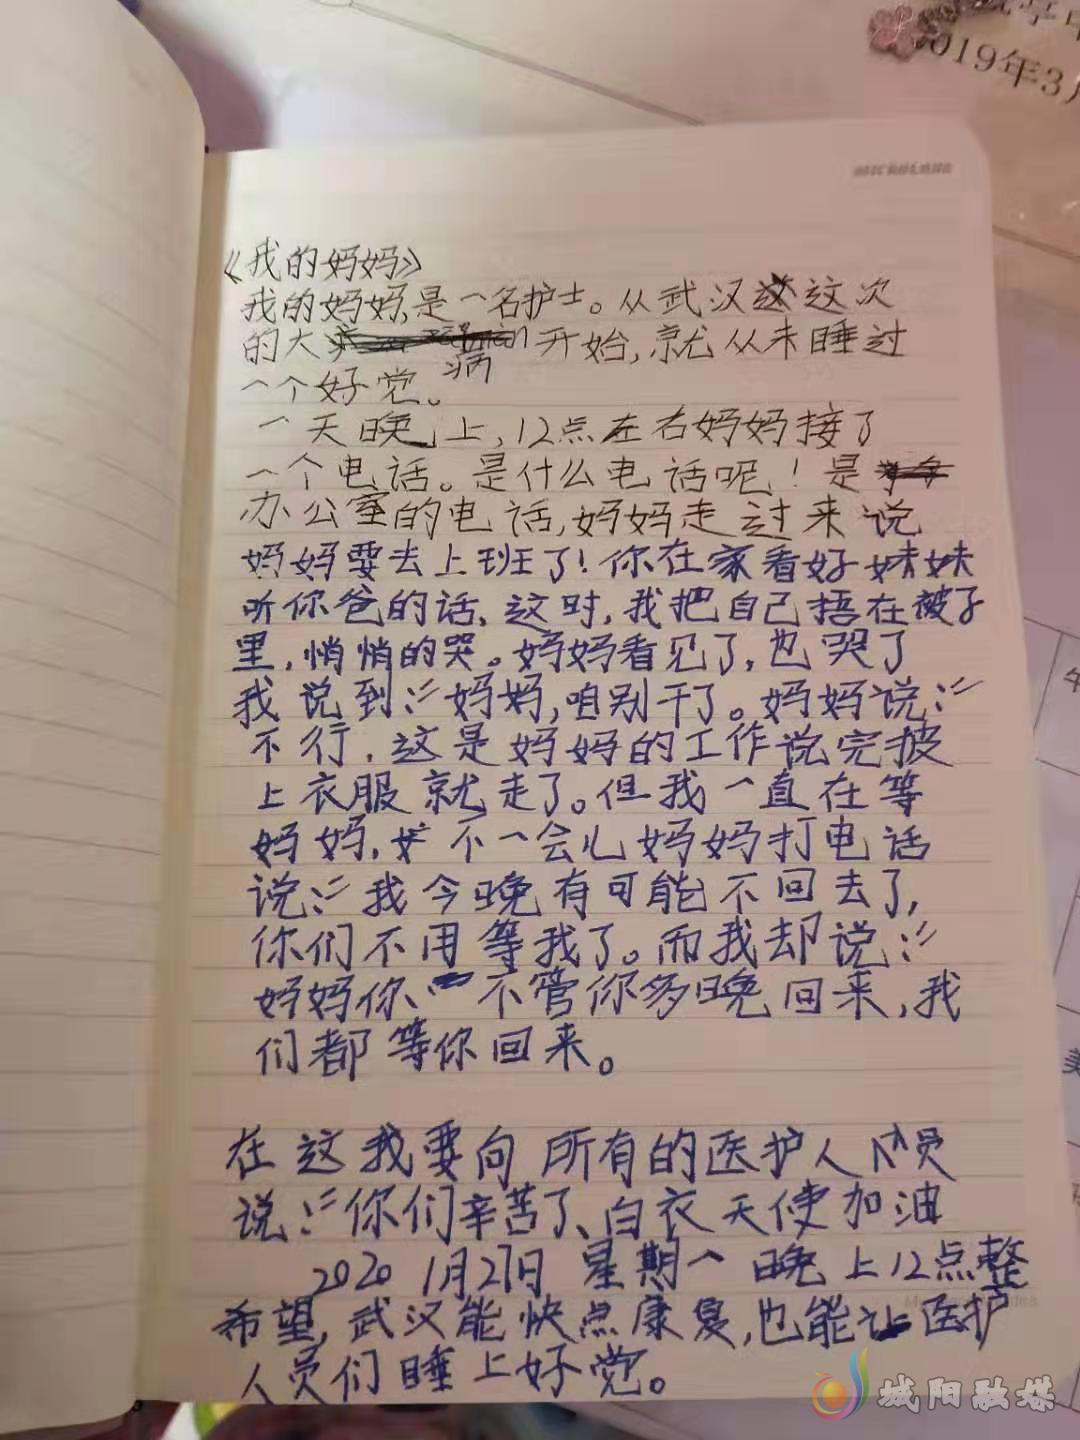 2019年3月
MICROLAND
《我的妈妈》
我的妈妈,是一名护士。从武汉这次
的大病开始,就从未睡过
一个好觉。
一天晚上,12点左右妈妈接了
一个电话。是什么电话呢!是
办公室的电话,妈妈走过来说
妈妈要去上班了!你在家看好妹妹
听你爸的话,这时,我把自己捂在被子
里,悄悄的哭。妈妈看见了,也哭了
我说到:“妈妈,咱别干了。妈妈说:“
不行,这是妈妈的工作说完披
上衣服就走了。但我一直在等
妈妈,不一会心妈妈打电话
说:“我今晚有可能不回去了,
你们不用等我了。而我却说:“
妈妈你、不管你多晚回来,我
们都等你回来。
在这我要向所有的医护人员
说:“你们辛苦了、白衣天使加油
2020 1月27日 星期一 晚上12点整
希望,武汉能快点康复,也能让医护
人员们睡上好觉。
城阳融媒